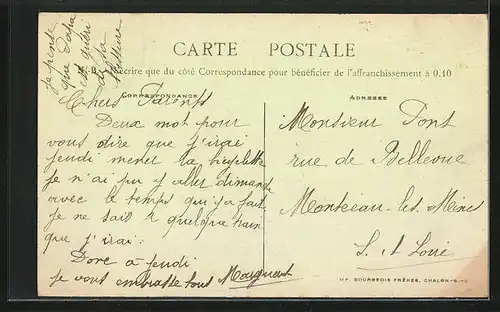 Je pense
que Papa
est guéri
de sa
CARTE POSTALE
N.B. écrire que du côté Correspondance pour bénéficier de l'affranchissement à 0,10
CORRESPONDANCE
ADRESSE
Chers Parents
Deux mot pour
vous dire que j'irai
jeudi mener la bicyclette
je n'ai pu y aller dimanche
avec le temps qu'il y a fait
je ne sait quelque
que j'irai.
Donc à jeudi
je vous embrasse tous Marguerite
Monsieur Pont
rue de Bellevue
Montceau-les-Mines
S. et Loire
IMP. BOURGEOIS FRÈRES, CHALON-S-S